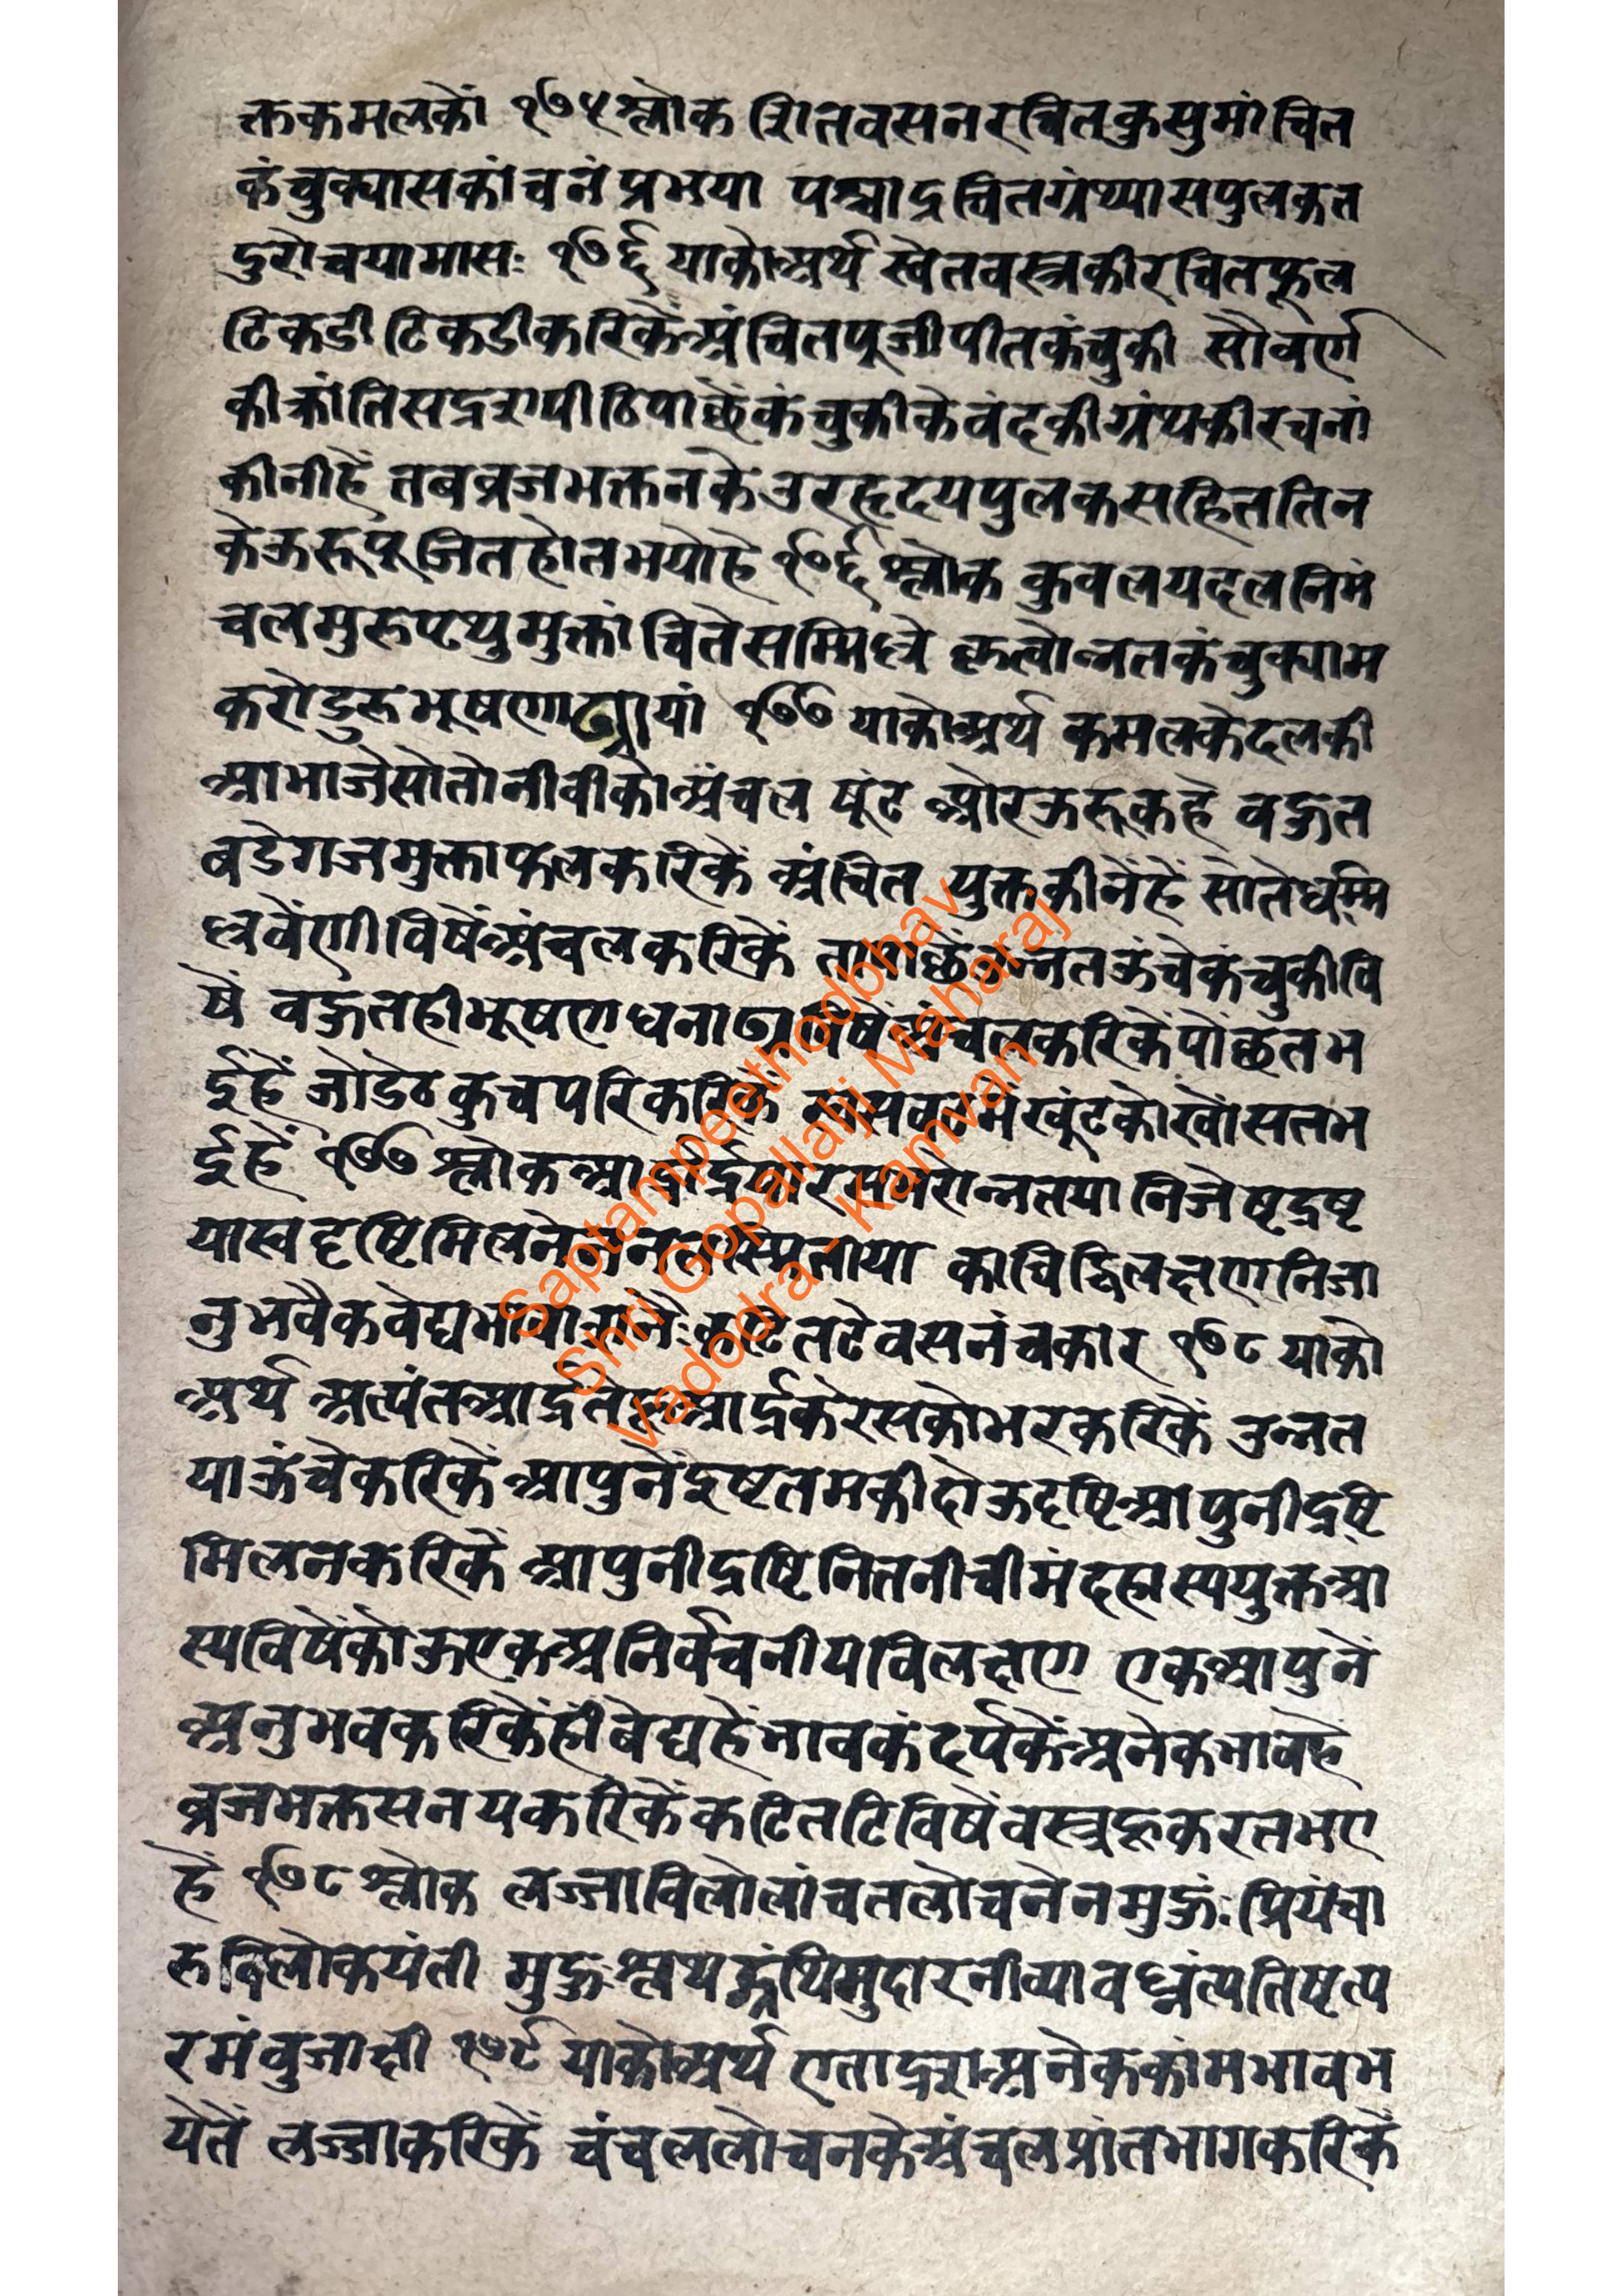 क्तकमलकों १७५ श्लोक शितवसनरचितकुसुमांचित
कंचुक्यासकांचनंप्रभया पश्चाद्रचितग्रंथ्यासपुलकत
दुरोचयामासः १७६ याकोअर्थ स्वेतवस्त्रकीरचितफूल
टिकडी टिकडीकरिकेंअंचितपूजीपीतकंचुकी सौवर्ण
कीकांतिसद्रशपीठिपाछेंकंचुकीकेवंदकीग्रंथकीरचनां
कीनीहें तबव्रजभक्तनकेउरहृदयपुलकसहिततिन
केऊरूपूजितहोतभयोहे १७६ श्लोक कुवलयदलनिभमं
चलमुरुपृथुमुक्तांचितेसम्मिल्ले कृत्वोन्नतकंचुक्याम
करोदुरुभूषणाढ्यायां १७७ याकोअर्थ कमलकेदलकी
आभाजेसोतोनीवीकोअंचल षूंट ओरऊरूकहे वहुत
बडेगजमुक्ताफलकरिकें अंचित युक्तकीनेंहें सोतेधम्मि
ल्लवेंणीविषेंअंचलकरिकें तापाछेंउन्नतऊंचेकंचुकीवि
षें वहुतहीभूषणघनाढ्यविषेंअंचलकरिकेंपोंछतभ
ईहें जोडेठकुचपरिकरिकें नासवटमेंखूंटकोखोंसतभ
ईहें १७७ श्लोकआर्द्रार्द्रसारसभरोन्नतयानिजेष्टद्रष्ट
यास्वदृष्टिमिलनेनननतास्मितास्या काचिद्विलक्षणनिजा
नुभवैकवेद्यभावासनैःकटितटेवसनंचकार १७८ याको
अर्थ अत्यंतआर्द्रतेहुआर्द्रकेरसकोभरकरिकें उन्नत
याऊंचेकरिकें आपुनेंइष्टतमकीदोऊदृष्टिआपुनीद्रष्टि
मिलनकरिकें आपुनीद्रष्टिनितनीचीमंदहास्ययुक्तआ
स्यविषेंकोऊएकअनिर्वचनीयविलक्षण एकआपुनें
अनुभवकरिकेंहीवेद्यहेंभावकंदर्पकेंअनेकभावहे
व्रजभक्तसनयकरिकेंकटितटिविषेंवस्त्रकूकरतभए
हें १७८ श्लोक लज्जाविलोलांचतलोचनेनमुहुःप्रियंचा
रुविलोकयंती मुहुःश्लथद्ग्रंथिमुदारनीव्यावध्नंत्यतिष्टत्प
रमंवुजाक्षी १७९ याकोअर्थ एताद्रशअनेककांमभावभ
येतें लज्जाकरिकें चंचललोचनकेअंचलप्रांतभागकरिकें
Saptampeethodbhav
Shri Gopallalji Maharaj
Vadodra - Kamvan